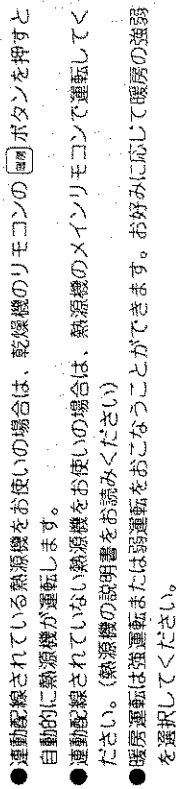 ●連動配線されている熱源機をお使いの場合は、乾燥機のリモコンの 暖房 ボタンを押すと
自動的に熱源機が運転します。
●連動配線されていない熱源機をお使いの場合は、熱源機のメインリモコンで運転してく
ださい。(熱源機の説明書をお読みください)
●暖房運転は強運転または弱運転をおこなうことができます。お好みに応じて暖房の強弱
を選択してください。